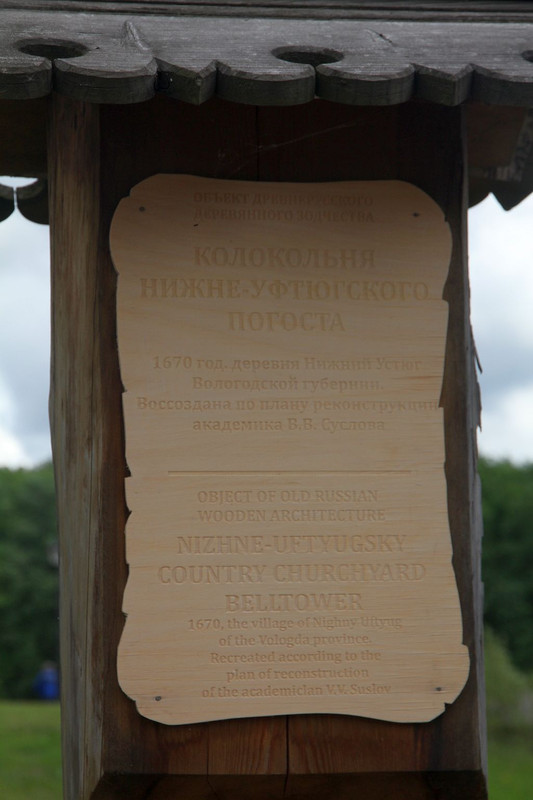 ОБЪЕКТ ДРЕВНЕРУССКОГО
ДЕРЕВЯННОГО ЗОДЧЕСТВА
КОЛОКОЛЬНЯ
НИЖНЕ-УФТЮГСКОГО
ПОГОСТА
1670 год. деревня Нижний Устюг
Вологодской губернии.
Воссоздана по плану реконструкции
академика В.В. Суслова
OBJECT OF OLD RUSSIAN
WOODEN ARCHITECTURE
NIZHNE-UFTYUGSKY
COUNTRY CHURCHYARD
BELLTOWER
1670, the village of Nighny
of the Vologda province.
Recreated according to the
plan of reconstruction
of the academician V.V. Suslov